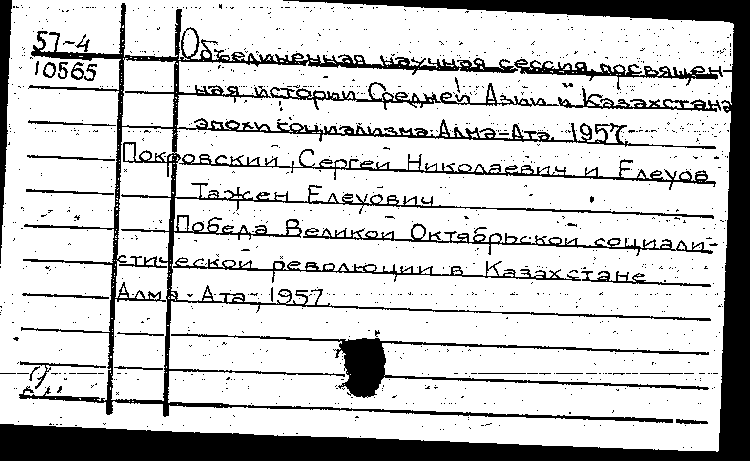 57-4
10565
Объединенная научная сессия, посвящен-
ная истории Средней Азии и Казахстана
эпохи социализма. Алма-Ата. 1957.
Покровский, Сергей Николаевич и Елеуов
Тажен Елеуович
Победа Великой Октябрьской социали-
стической революции в Казахстане
Алма-Ата, 1957.